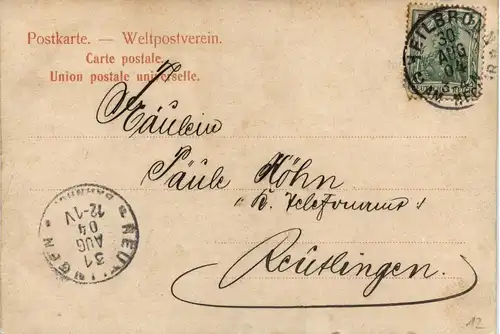 Postkarte. — Weltpostverein.
Carte postale.
Union postale universelle.
HEILBRONN
30
AUG
04
Fräulein
Paule Höhn
Reutlingen.
REUTLINGEN
BAHNHOF
12-1V
31
AUG
04
12